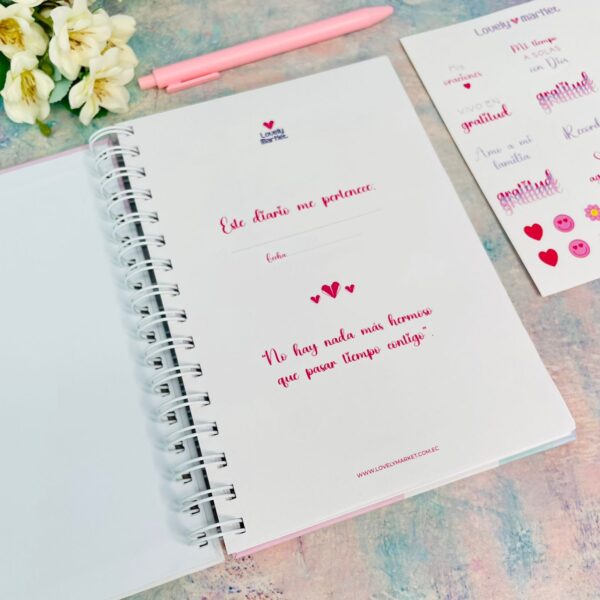 Lovely
market
Este diario me pertenece:
Fecha:
"No hay nada más hermoso
que pasar tiempo contigo".
WWW.LOVELYMARKET.COM.EC
Lovely market
Mis
oraciones
Mi tiempo
A SOLAS
con Dios
VIVO EN
gratitud
gratitud
Amo a mi
familia
gratitud